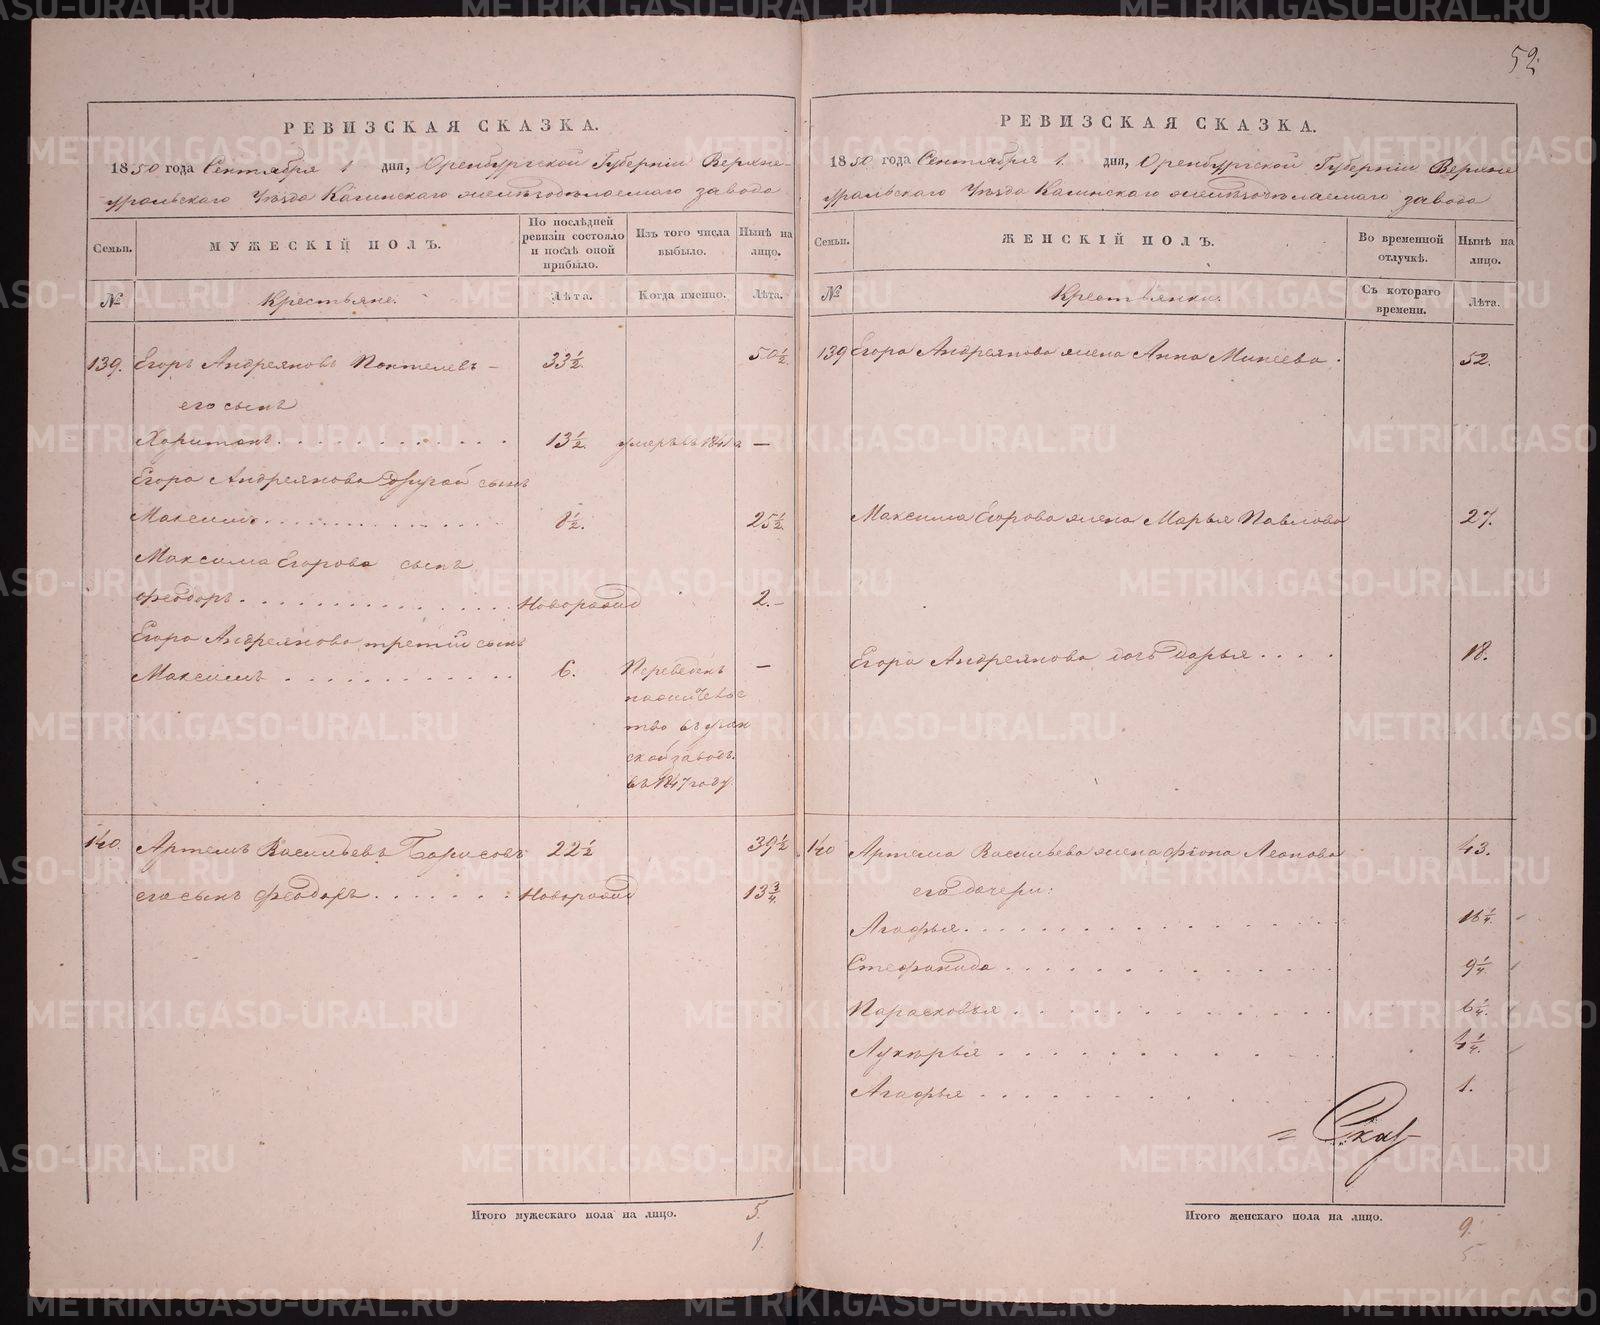 52
РЕВИЗСКАЯ СКАЗКА.
1850 года Сентября 1 дня, Оренбургской Губерніи Верхне-
уральскаго Уѣзда Кагинскаго желѣзодѣлаемаго завода
Семьи.
МУЖЕСКІЙ ПОЛЪ.
По послѣдней ревизіи состояло и послѣ оной прибыло.
Изъ того числа выбыло.
Нынѣ на лицо.
№
Крестьяне.
Лѣта.
Когда именно.
Лѣта.
139. Егоръ Андреяновъ Пантелевъ - 33½ 50½
его сынъ
Харитонъ 13½ умеръ въ —
Егора Андреянова другой сынъ
Максимъ 8½. 25½
Максима Егорова сынъ
Феодоръ Новорожд 2.-
Егора Андреянова третій сынъ
Максимъ 6. Переведенъ —
тво въ
ской заводъ.
въ 1847 году
140. Артемъ Васильевъ Борисовъ 22½ 39½
его сынъ Феодоръ Новорожд 13¾
Итого мужескаго пола на лицо. 5.
1.
РЕВИЗСКАЯ СКАЗКА.
1850 года Сентября 1. дня, Оренбургской Губерніи Верхне
уральскаго Уѣзда Кагинскаго желѣзодѣлаемаго завода
Семьи.
ЖЕНСКІЙ ПОЛЪ.
Во временной отлучкѣ.
Нынѣ на лицо.
№
Крестьянки.
Съ котораго времени.
Лѣта.
139 Егора Андреянова жена Анна Минеева. 52.
Максима Егорова жена Марья Павлова 27.
Егора Андреянова дочь Марья 18.
140 Артема Васильева жена Леонова 43.
его дочери:
Агафья 16¼
Стефанида 9¼
Парасковья 6¼
Лукерья 4¼
Агафья 1.
= Скар
Итого женскаго пола на лицо. 9.
5
METRIKI.GASO-URAL.RU